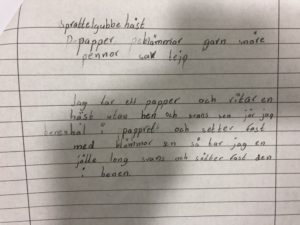 sprattelgubbe häst
papper klämmor garn snöre
pennor sax tejp
Jag tar ett papper och ritar en
häst utan ben och svans sen jör jag
hål i pappret och setter fast
med klämmor sen så tar jag en
jätte long svans och sätter fast den
i benen.